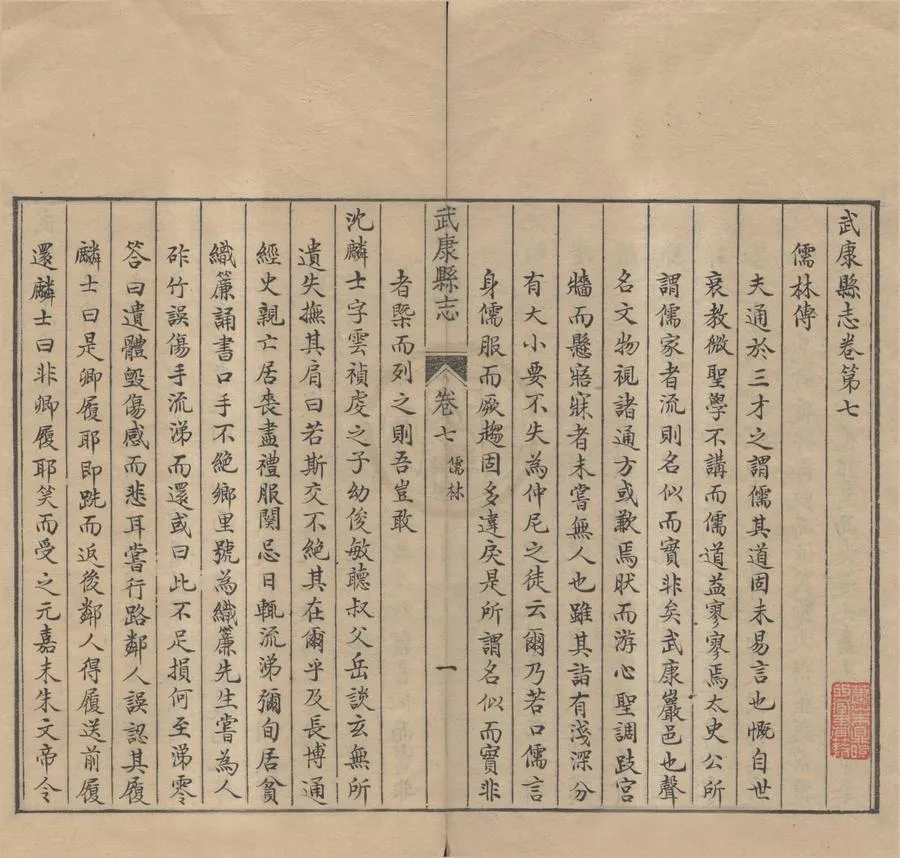 武康縣志卷第七
儒林傳
夫通於三才之謂儒其道固未易言也慨自世
衰教微聖學不講而儒道益寥寥焉太史公所
謂儒家者流則名似而實非矣武康巖邑也聲
名文物視諸通方或歉焉肰而游心聖調跂宮
牆而懸寤寐者未嘗無人也雖其詣有淺深分
有大小要不失為仲尼之徒云爾乃若口儒言
身儒服而厥趨固多違戾是所謂名似而實非
者槩而列之則吾豈敢
武康縣志
卷七
儒林
一
沈麟士字雲禎虔之子幼俊敏聽叔父岳談玄無所
遺失撫其肩曰若斯交不絕其在爾乎及長博通
經史親亡居喪盡禮服闋忌日輒流涕彌旬居貧
織簾誦書口手不絕鄉里號為織簾先生嘗為人
斫竹誤傷手流涕而還或曰此不足損何至涕零
答曰遺體毀傷感而悲耳嘗行路鄰人誤認其履
麟士曰是卿履耶即跣而返後鄰人得履送前履
還麟士曰非卿履耶笑而受之元嘉末朱文帝令